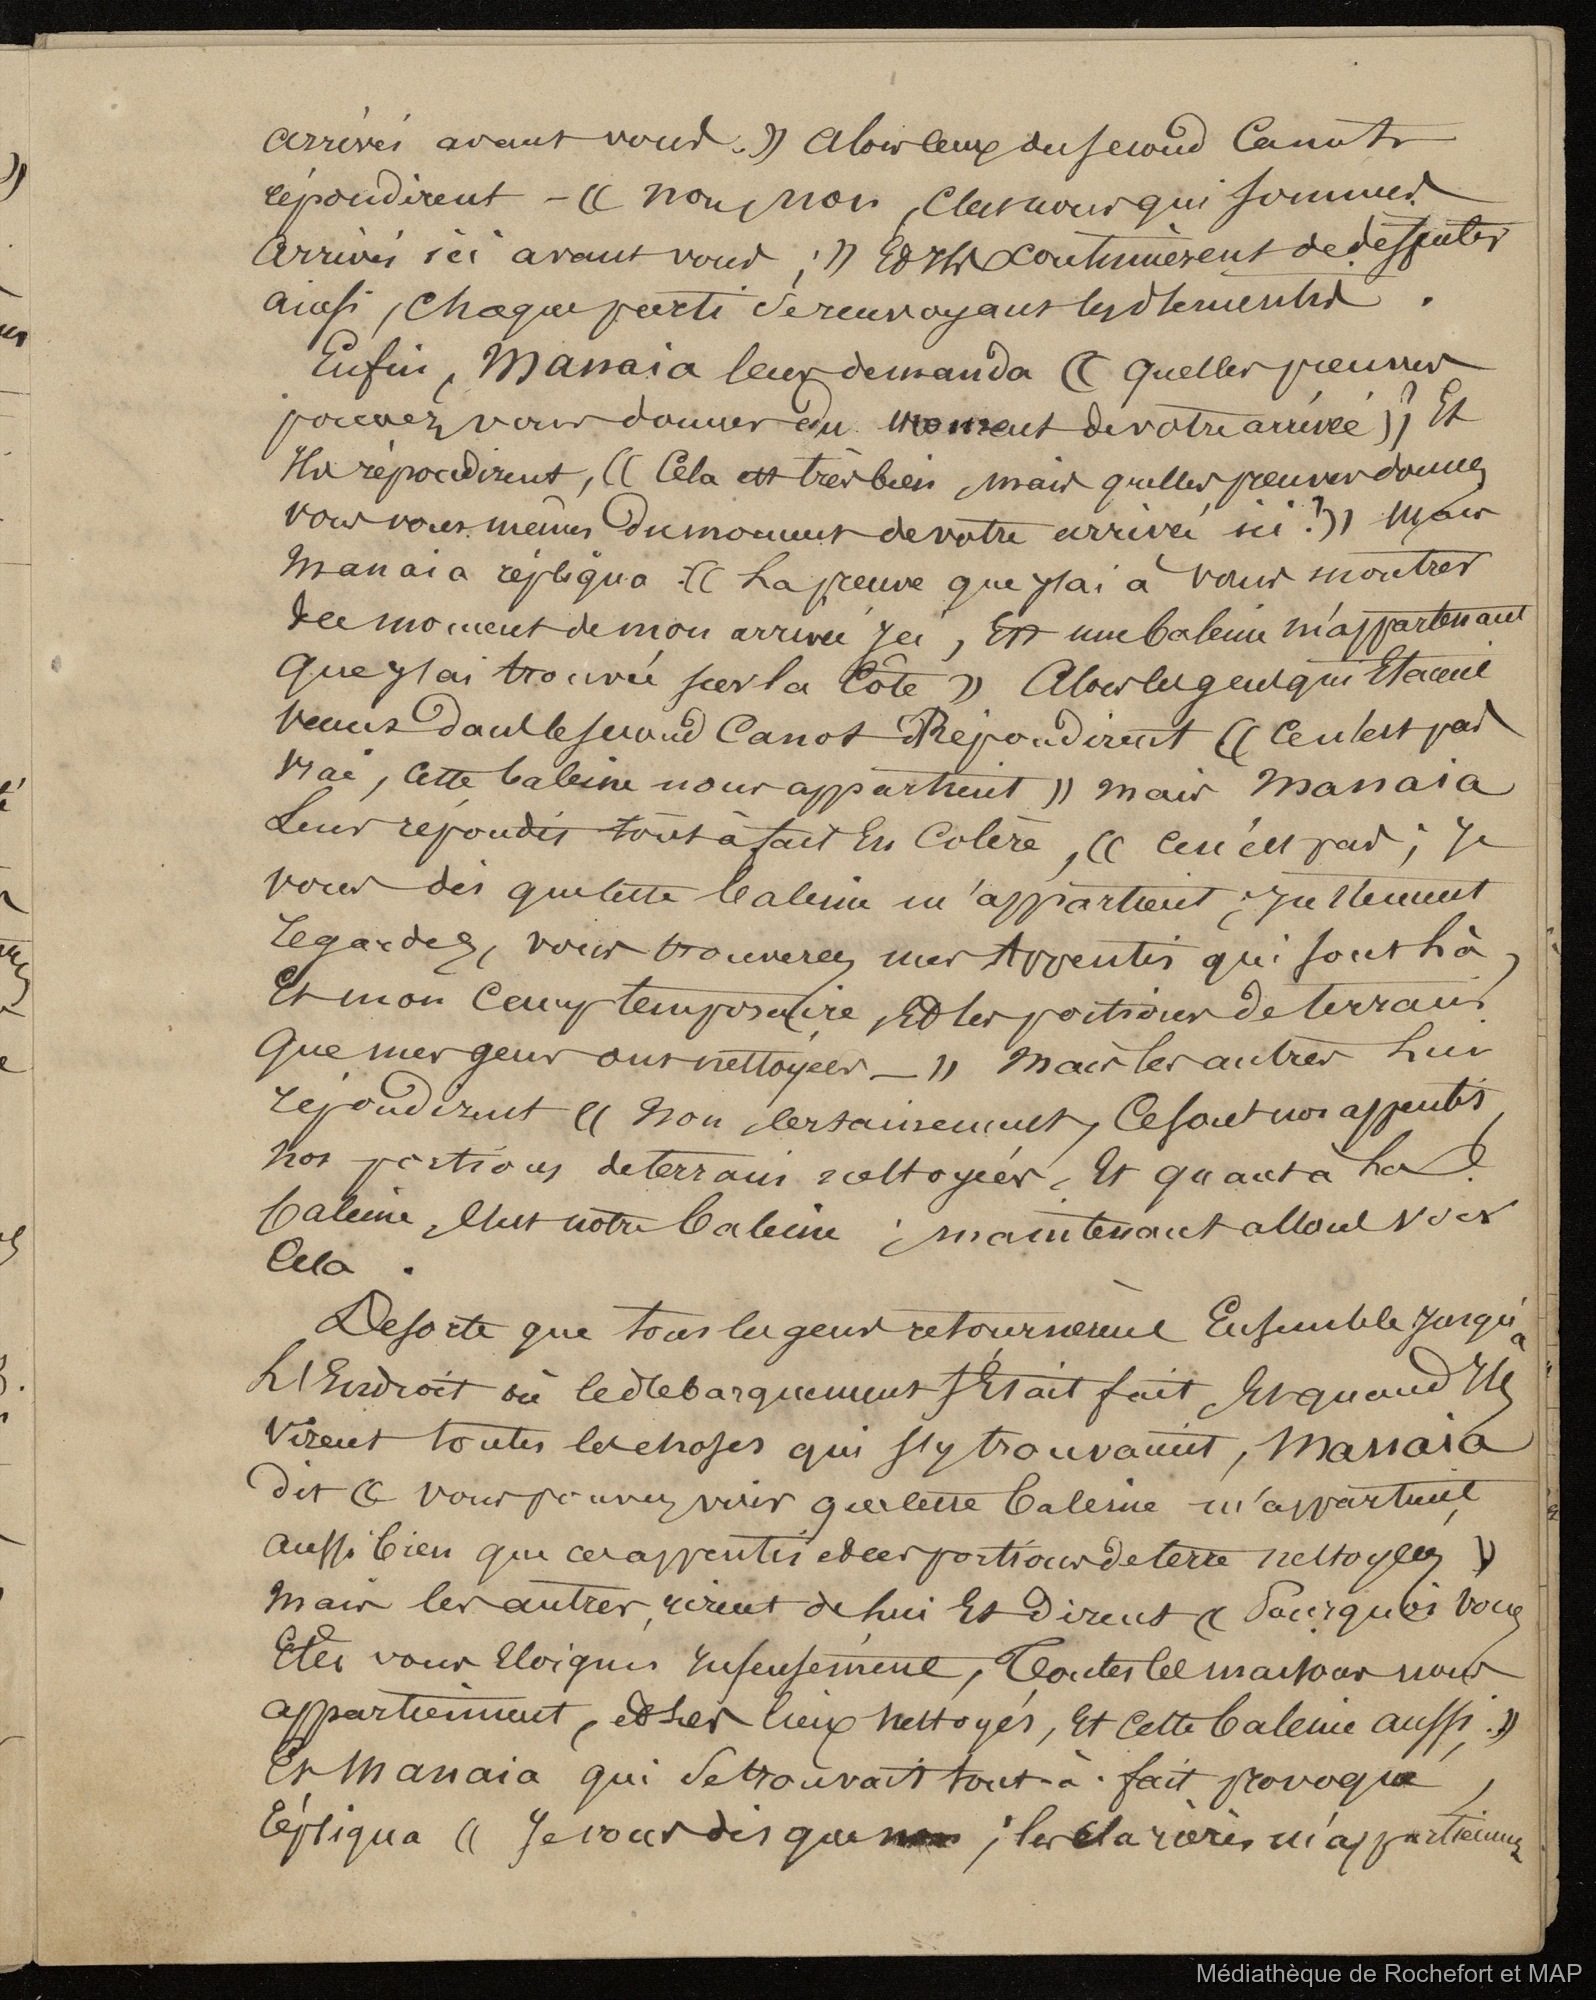 arrivés avant vous. » Alors ceux du second Canots
répondirent – « non, non, c'est nous qui sommes
arrivés ici avant vous ; » Et Ils continuèrent de desputer
ainsi, chaque parti se renvoyant les dementis .
Enfin, Manaia leur demanda « quelles preuves
pouvez vous donner du moment de votre arrivée » ? Et
Ils répondirent, « Cela est très bien, mais quelles preuves donnez
vous vous mêmes du moment de votre arrivée ici ? » Mais
Manaia répliqua « La preuve que j'ai à vous montrer
du moment de mon arrivée ici, Est une baleine m'appartenant
que j'ai trouvée sur la Côte » Alors les gens qui Etaient
venus dans le second Canot Répondirent « Ce n'est pas
vrai, cette baleine nous appartient » mais Manaia
Leur répondit tout à fait En Colère, « Ce n'est pas ; Je
vous dis que cette baleine m'appartient ;
regardez, vous trouverez mes Appentis qui sont Là,
Et mon Camp temporaire, Et les portions de terrain
que mes gens ont nettoyées — » Mais les autres Lui
répondirent « Non certainement, Ce sont nos appentis,
nos portions de terrain nettoyées, Et quant à La
baleine, c'est notre baleine ; maintenant allons voir
Cela .
De sorte que tous les gens retournèrent Ensemble Jusqu'à
L'Endroit où le debarquement s'Etait fait, Et quand Ils
virent toutes les choses qui s'y trouvaient, Manaia
dit « vous pouvez voir que cette baleine m'appartient
aussi bien que ces appentis et ces portions de terre nettoyées »
Mais les autres rirent de Lui Et dirent « Pourquoi vous
Etes vous Eloignés Insensément, Toutes les maisons nous
appartiennent, et Les lieux nettoyés, Et cette baleine aussi. »
Et Manaia qui se trouvait tout-à-fait provoqué,
répliqua « Je vous dis que non ; les clarières m'appartiennent
Médiathèque de Rochefort et MAP